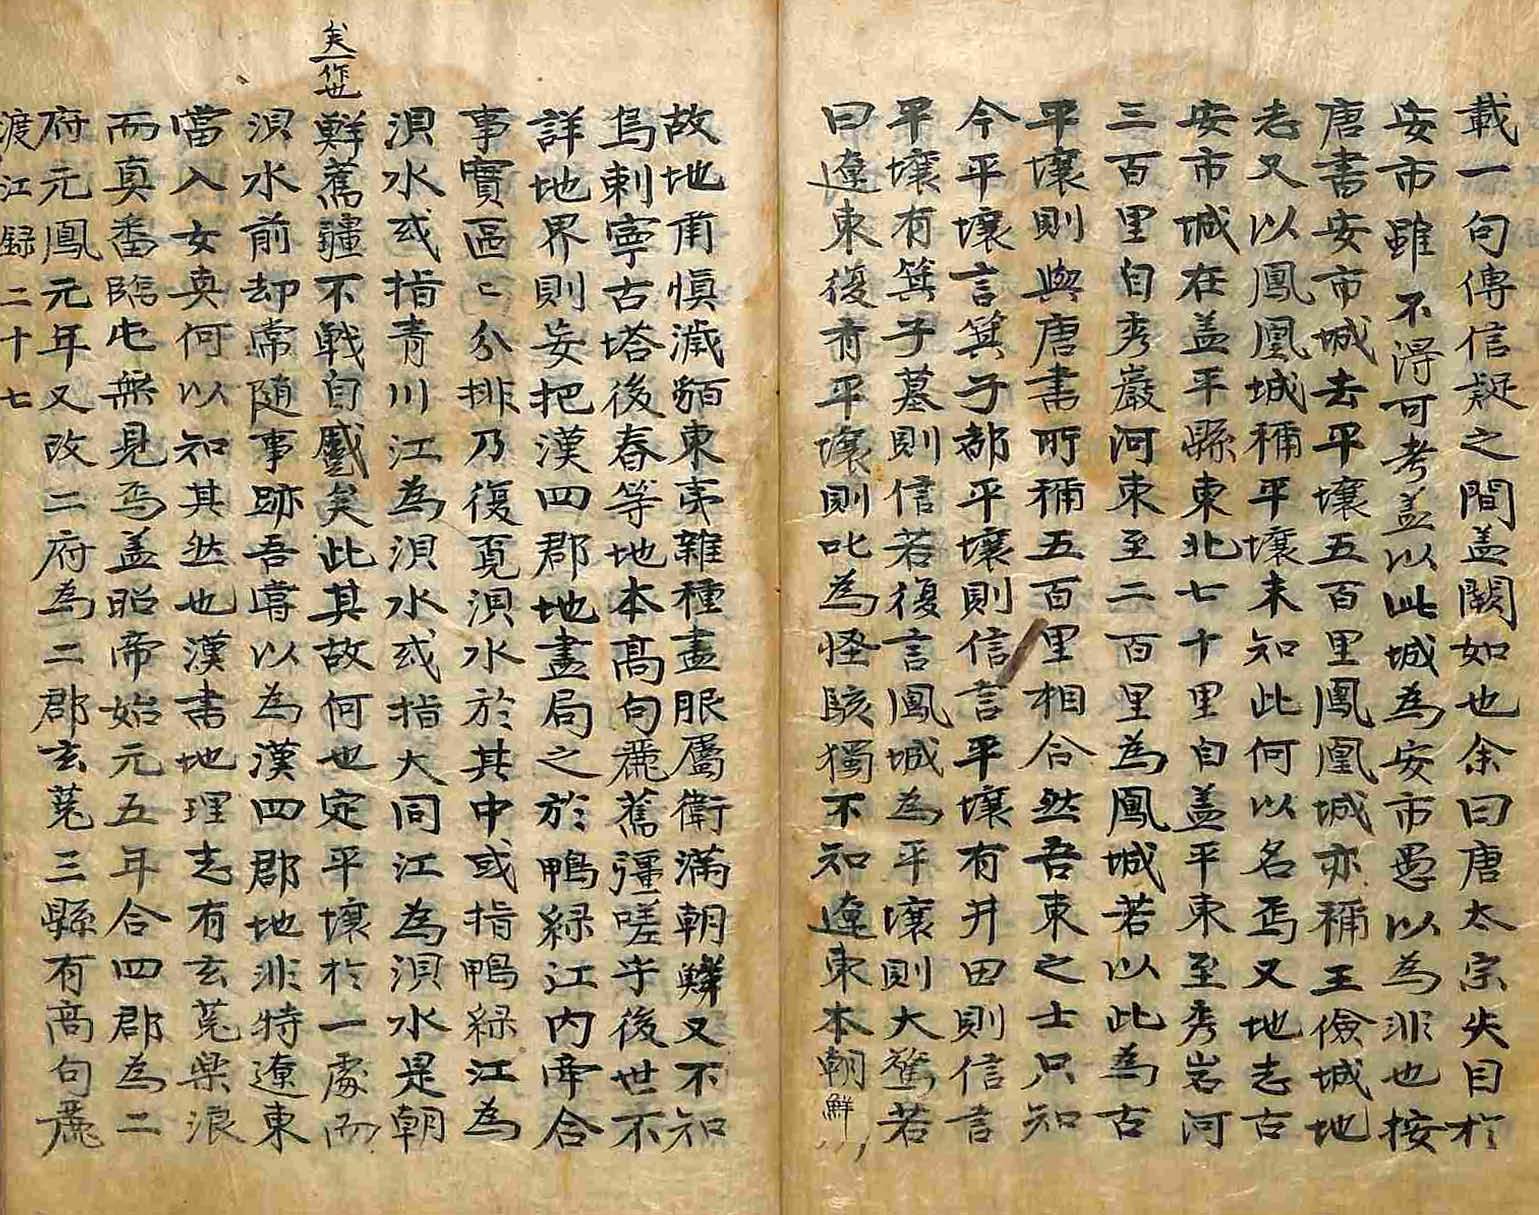 載一句傳信疑之間盖闕如也余曰唐太宗失目於
安市雖不淂可考盖以此城為安市愚以為非也按
唐書安市城去平壤五百里鳳凰城亦稱王儉城地
志又以鳳凰城稱平壤未知此何以名焉又地志古
安市城在盖平縣東北七十里自盖平東至秀岩河
三百里自秀巖河東至二百里為鳳城若以此為古
平壤則與唐書所稱五百里相合然吾東之士只知
今平壤言箕子都平壤則信言平壤有井田則信言
平壤有箕子墓則信若復言鳳城為平壤則大驚若
曰遼東復有平壤則叱為怪駭獨不知遼東本朝鮮
故地甭慎濊貊東夷雜種盡服屬衛滿朝鮮又不知
烏剌寧古塔後春等地本高句麗舊彊嗟乎後世不
詳地界則妄把漢四郡地盡局之於鴨緑江内牵合
事實區〻分排乃復覔浿水於其中或指鴨緑江為
浿水或指青川江為浿水或指大同江為浿水是朝
矣一作也
鮮舊疆不戰自蹙矣此其故何也定平壤於一處而
浿水前却常随事跡吾嘗以為漢四郡地非特遼東
當入女真何以知其然也漢書地理志有玄菟樂浪
而真番臨屯無見焉盖昭帝始元五年合四郡為二
府元鳳元年又改二府為二郡玄菟三縣有高句麗
渡江録二十七